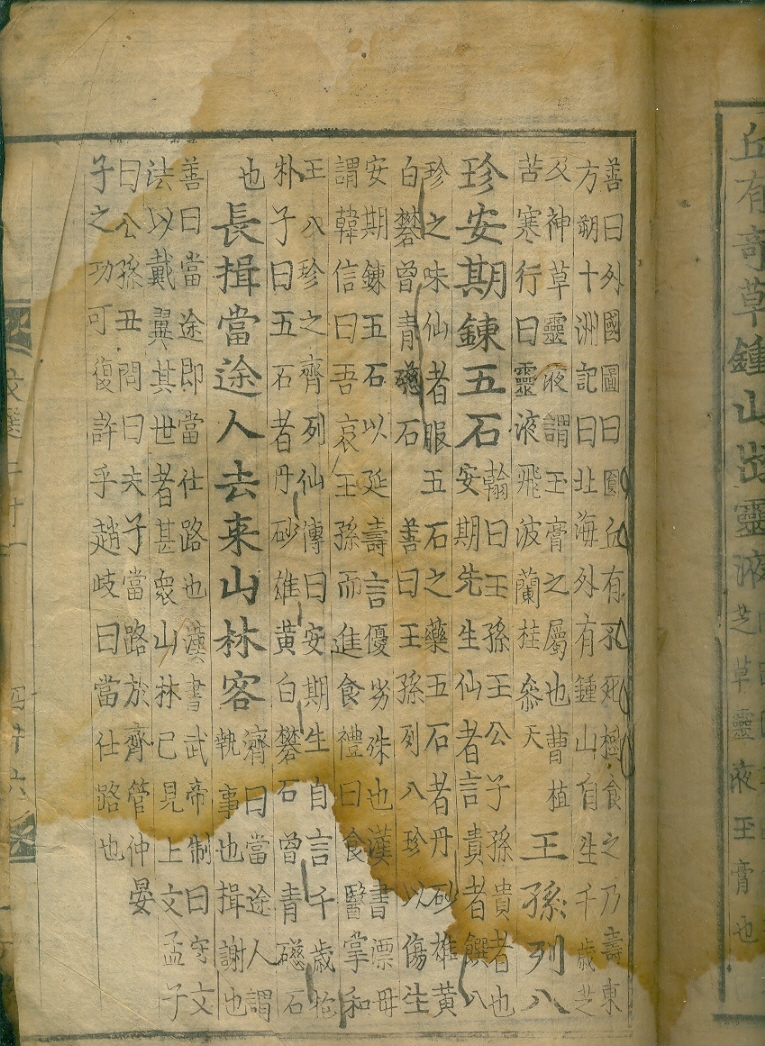 丘有奇草鍾山出靈液
芝草靈液玉膏也
善曰外國圖曰圜丘有不死樹食之乃壽東
方朔十洲記曰北海外有鍾山自生千歳芝
及神草靈液謂玉膏之屬也曹植
苦寒行曰靈液飛波蘭桂叅天
王孫列八
珍安期鍊五石
翰曰王孫王公子孫貴者也
安期先生仙者言貴者饌八
珍之味仙者服五石之藥五石者丹砂雄黄
白礬曾青礠石 善曰王孫列八珍以傷生
安期鍊五石以延壽言優劣殊也漢書漂母
謂韓信曰吾哀王孫而進食禮曰食醫掌和
王八珍之齊列仙傳曰安期生自言千歳抱
朴子曰五石者丹砂雄黄白礬石曾青礠石
也
長揖當途人去来山林客
濟曰當途人謂
執事也揖謝也
善曰當途即當仕路也漢書武帝制曰守文
法以戴翼其世者甚衆山林已見上文孟子
曰公孫丑問曰夫子當路於齊管仲晏
子之功可復許乎趙歧曰當仕路也
文選二十一
四十六